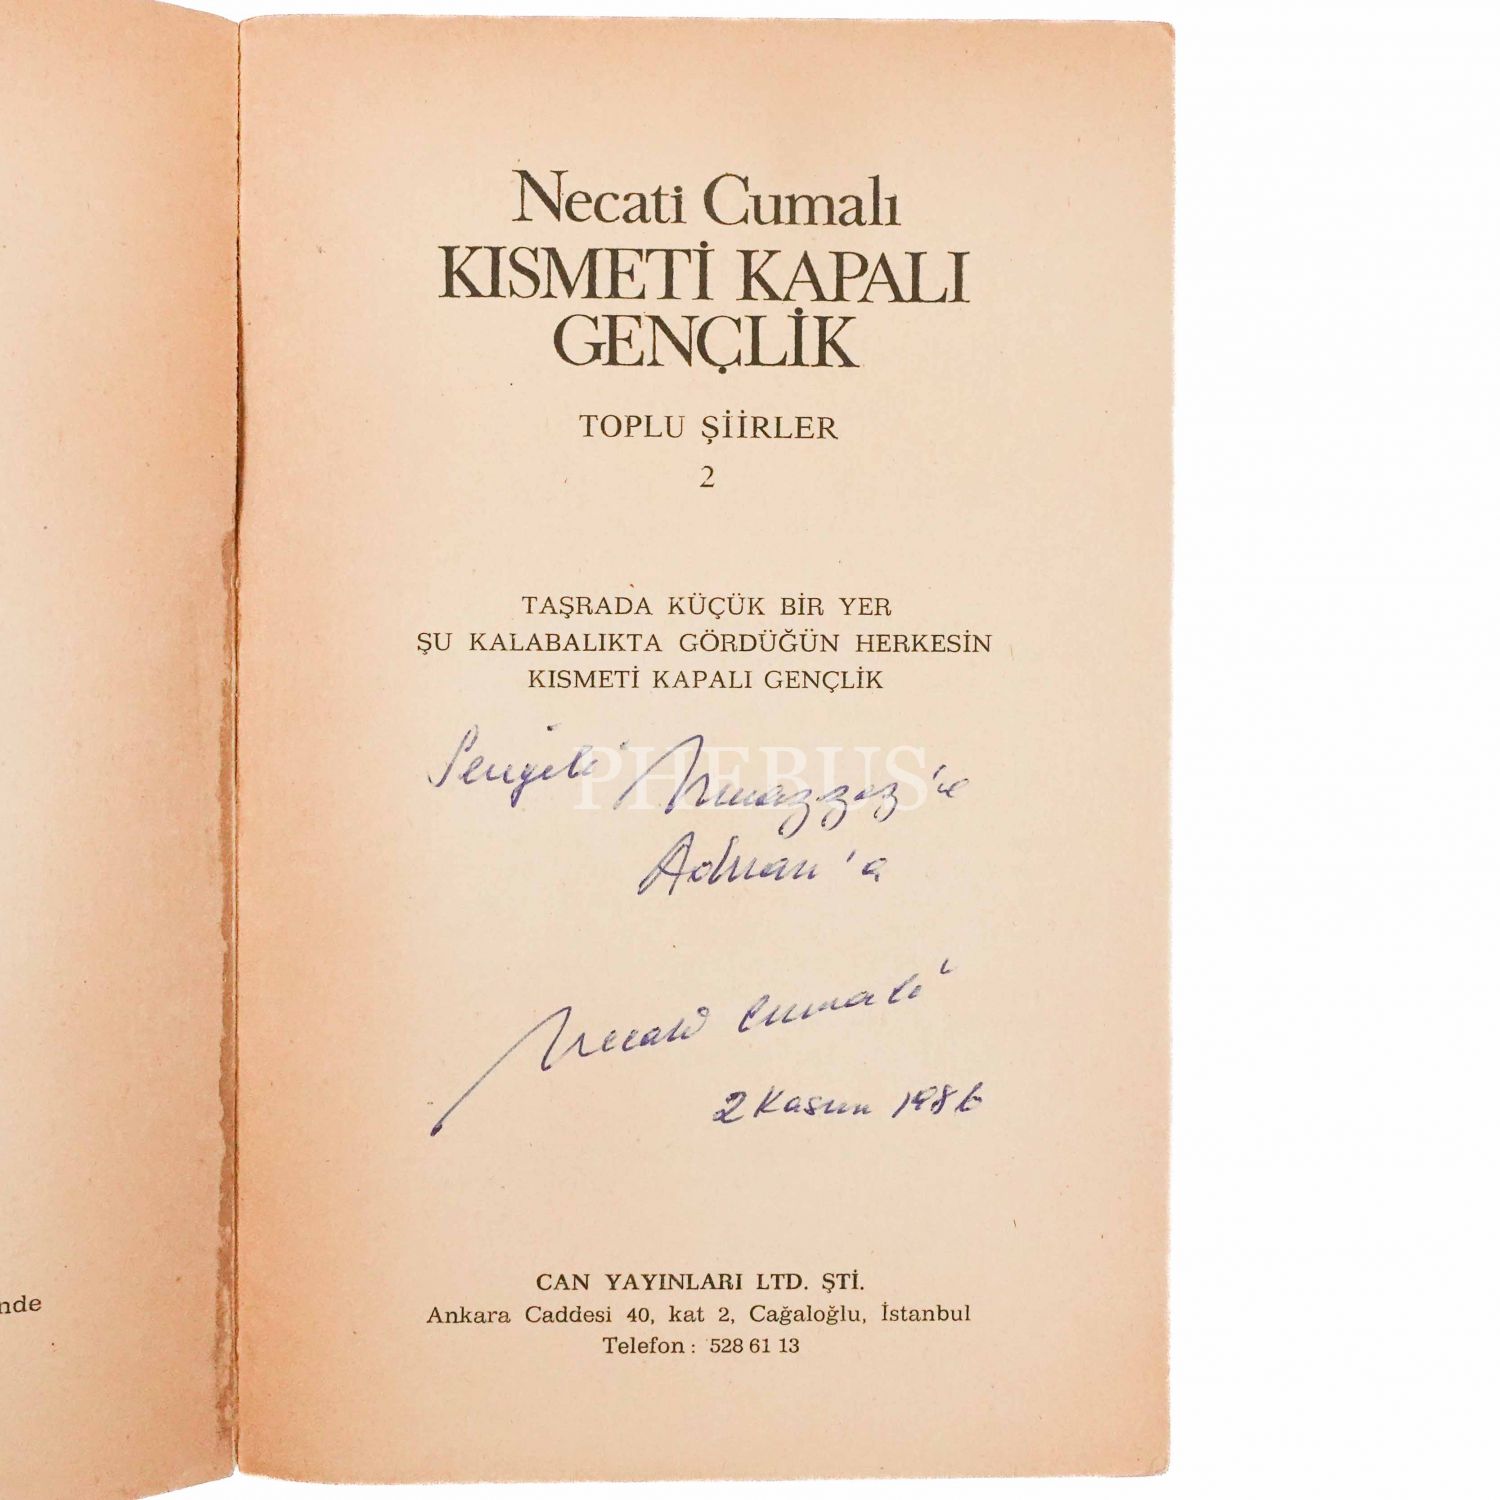 Necati Cumalı
KISMETİ KAPALI
GENÇLİK
TOPLU ŞİİRLER
2
TAŞRADA KÜÇÜK BİR YER
ŞU KALABALIKTA GÖRDÜĞÜN HERKESİN
KISMETİ KAPALI GENÇLİK
PHEBUS
Sevgili Muazzez'e
Adnan'a
Necati Cumalı
2 Kasım 1986
CAN YAYINLARI LTD. ŞTİ.
Ankara Caddesi 40, kat 2, Cağaloğlu, İstanbul
Telefon : 528 61 13
nde